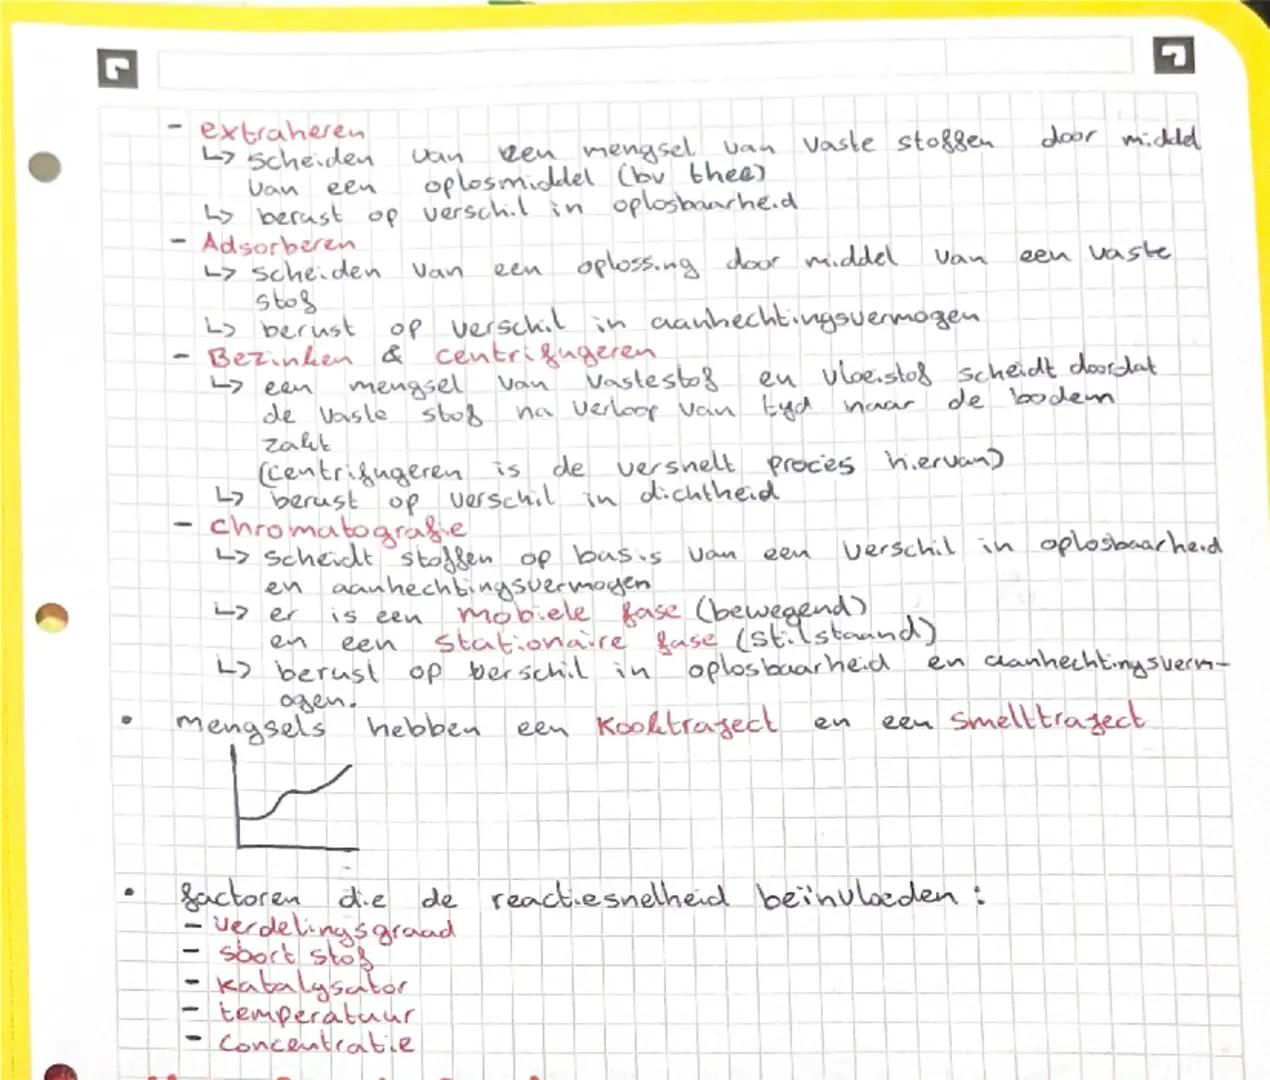 - extraheren
↳ scheiden van een mengsel van vaste stoffen door middel
van een oplosmiddel (bv thee)
↳ berust op verschil in oplosbaarheid
- Adsorberen
↳ scheiden van een oplossing door middel van een vaste
stof
↳ berust op verschil in aanhechtingsvermogen
- Bezinken & centrifugeren
↳ een mengsel van vastestof en vloeistof scheidt doordat
de vaste stof na verloop van tyd naar de bodem
zakt
(centrifugeren is de versnelt proces hiervan)
↳ berust op verschil in dichtheid
- chromatografie
↳ scheidt stoffen op basis van een verschil in oplosbaarheid
en aanhechtingsvermogen
↳ er is een mobiele fase (bewegend)
en een stationaire fase (stilstaand)
↳ berust op berschil in oplosbaarheid en aanhechtingsverm-
ogen.
• mengsels hebben een Kooktraject en een smelttraject
• factoren die de reactiesnelheid beïnvloeden :
- verdelingsgraad
- soort stof
- katalysator
- temperatuur
- concentratie